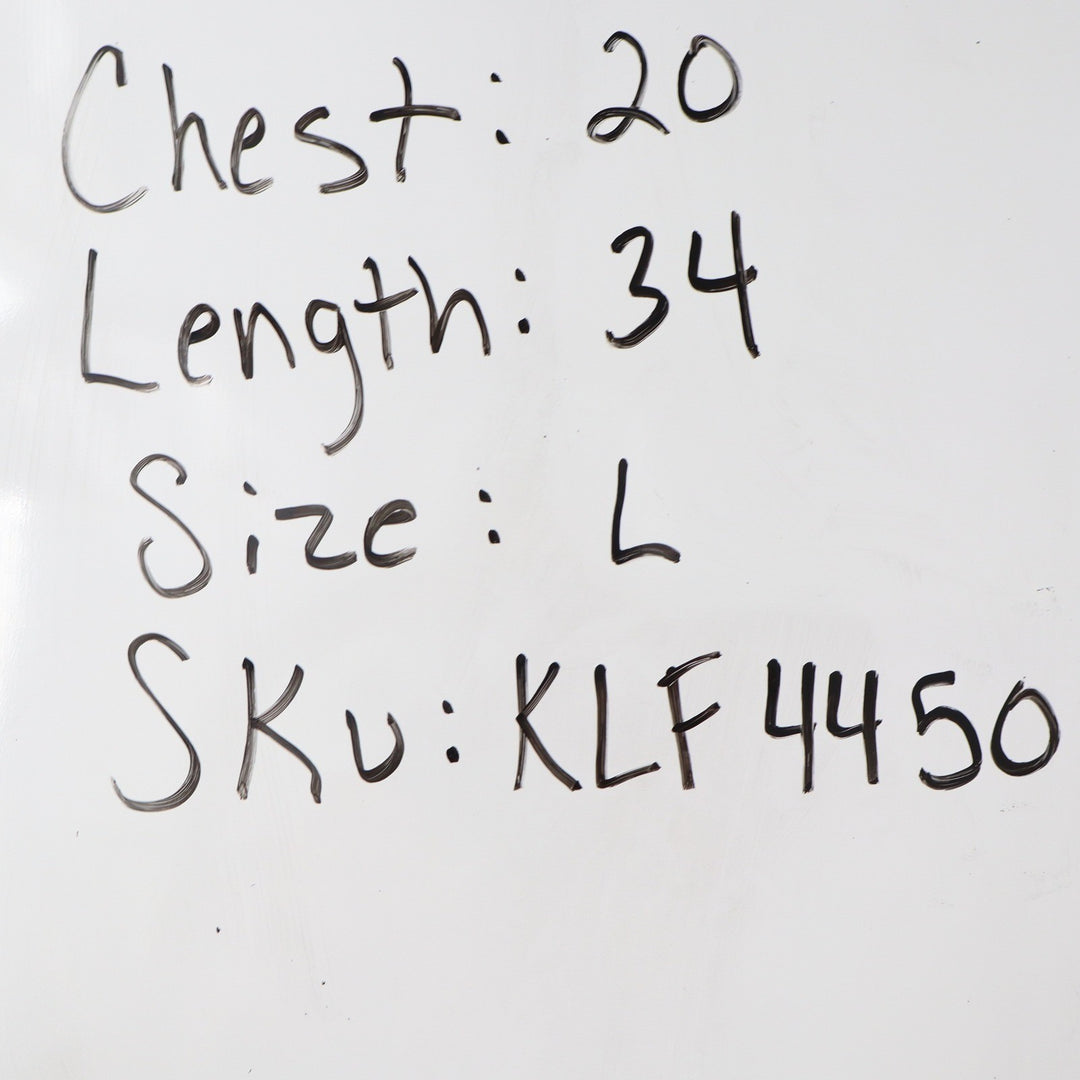 Chest: 20
Length: 34
Size: L
SKU: KLF4450